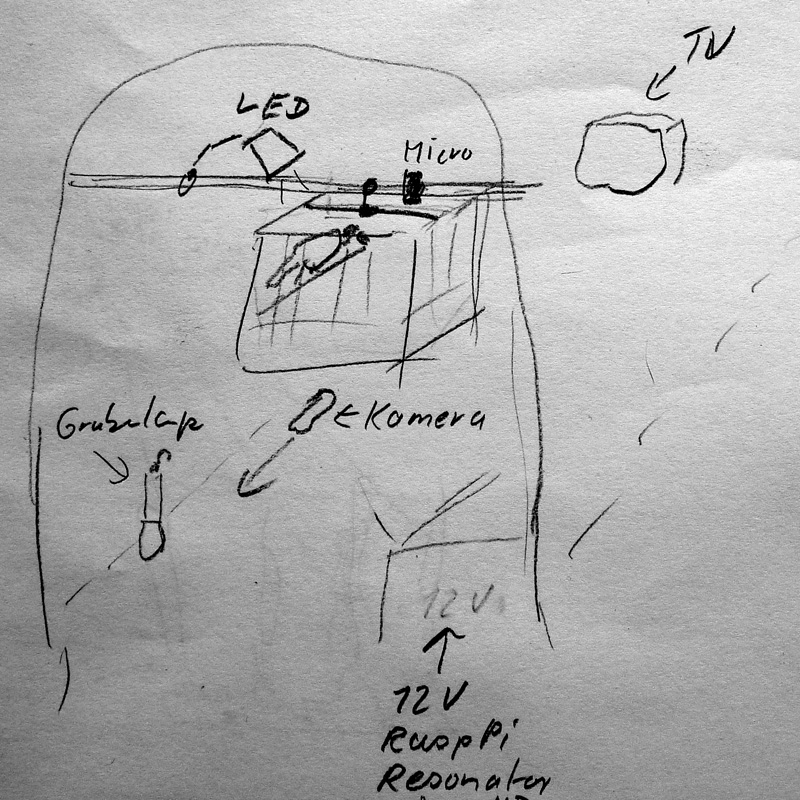 TV
LED
Micro
Grubelap
Kamera
12 V
12 V
RaspPi
Resonator